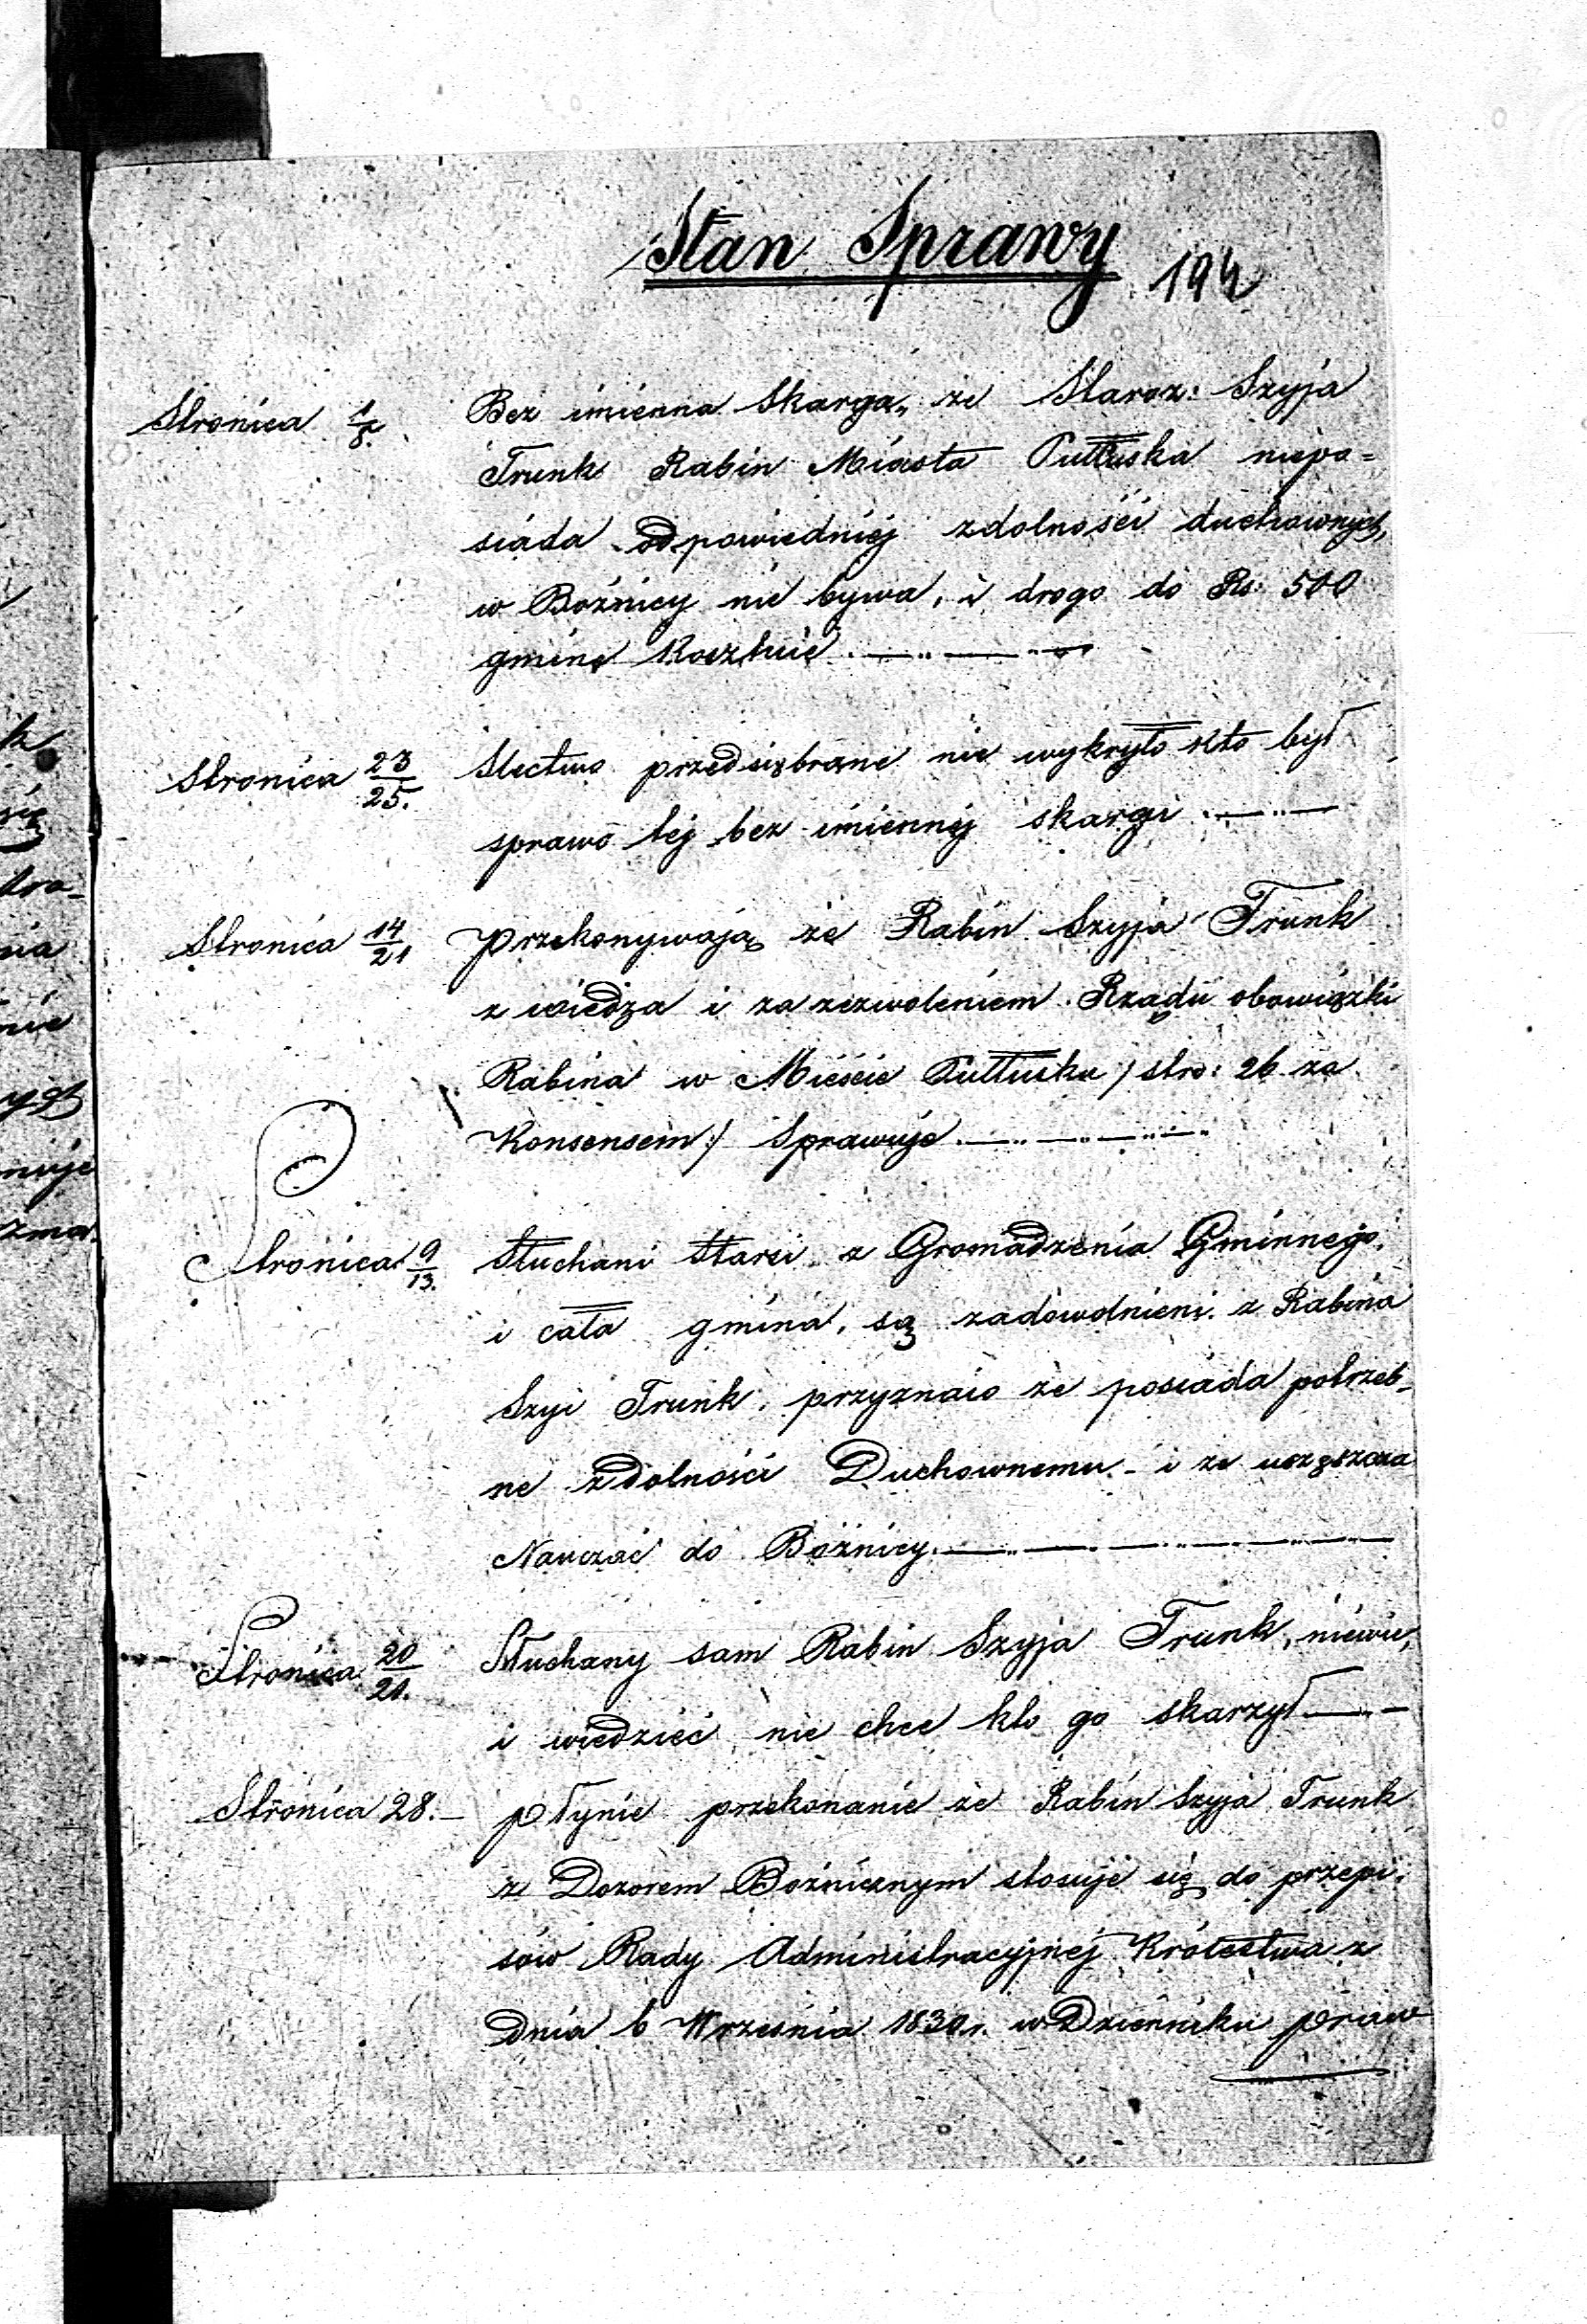 Stan Sprawy
194
Stronica 1/8. Bez imienna Skarga, że Staroz: Szyja
Trunk Rabin Miasta Pułtuska niepo=
siada odpowiedniej zdolności duchownych,
w Bożnicy nie bywa, i drogo do Rs: 500
gminę Kosztuie
Stronica 23/25. Slectwo przedsiębrane nie wykryło kto był
sprawo tej bez imiennej skargi
Stronica 14/21 przekonywają że Rabin Szyja Trunk
z wiedzą i za zezwoleniem Rządu obowiązki
Rabina w Mieście Pułtusku / stro: 26 za
Konsensem / Sprawuje
Stronica 9/13. Słuchani Starsi z Gromadzenia Gminnego
i cała gmina, są zadowolnieni z Rabina
Szyi Trunk, przyznaio że posiada potrzeb-
ne zdolności Duchownemu - i że uczęszcza
Nauczać do Bożnicy
Stronica 20/21. Słuchany sam Rabin Szyja Trunk, niewie,
i wiedzieć nie chce kto go skarzył
Stronica 28. płynie przekonanie że Rabin Szyja Trunk
z Dozorem Bożnicznym stosuje się do przepi-
sów Rady Administracyjnej Królestwa z
Dnia 6 Września 1830r. w Dzienniku praw